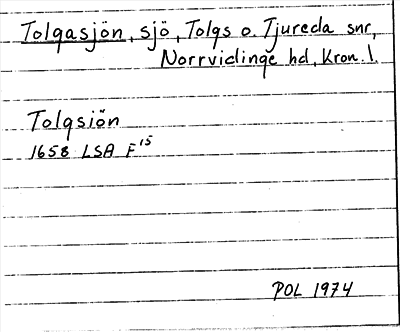 Tolgasjön, sjö, Tolgs o. Tjureda snr,
Norrvidinge hd, Kron. l.
Tolgsiön
1658 LSA F15
POL 1974